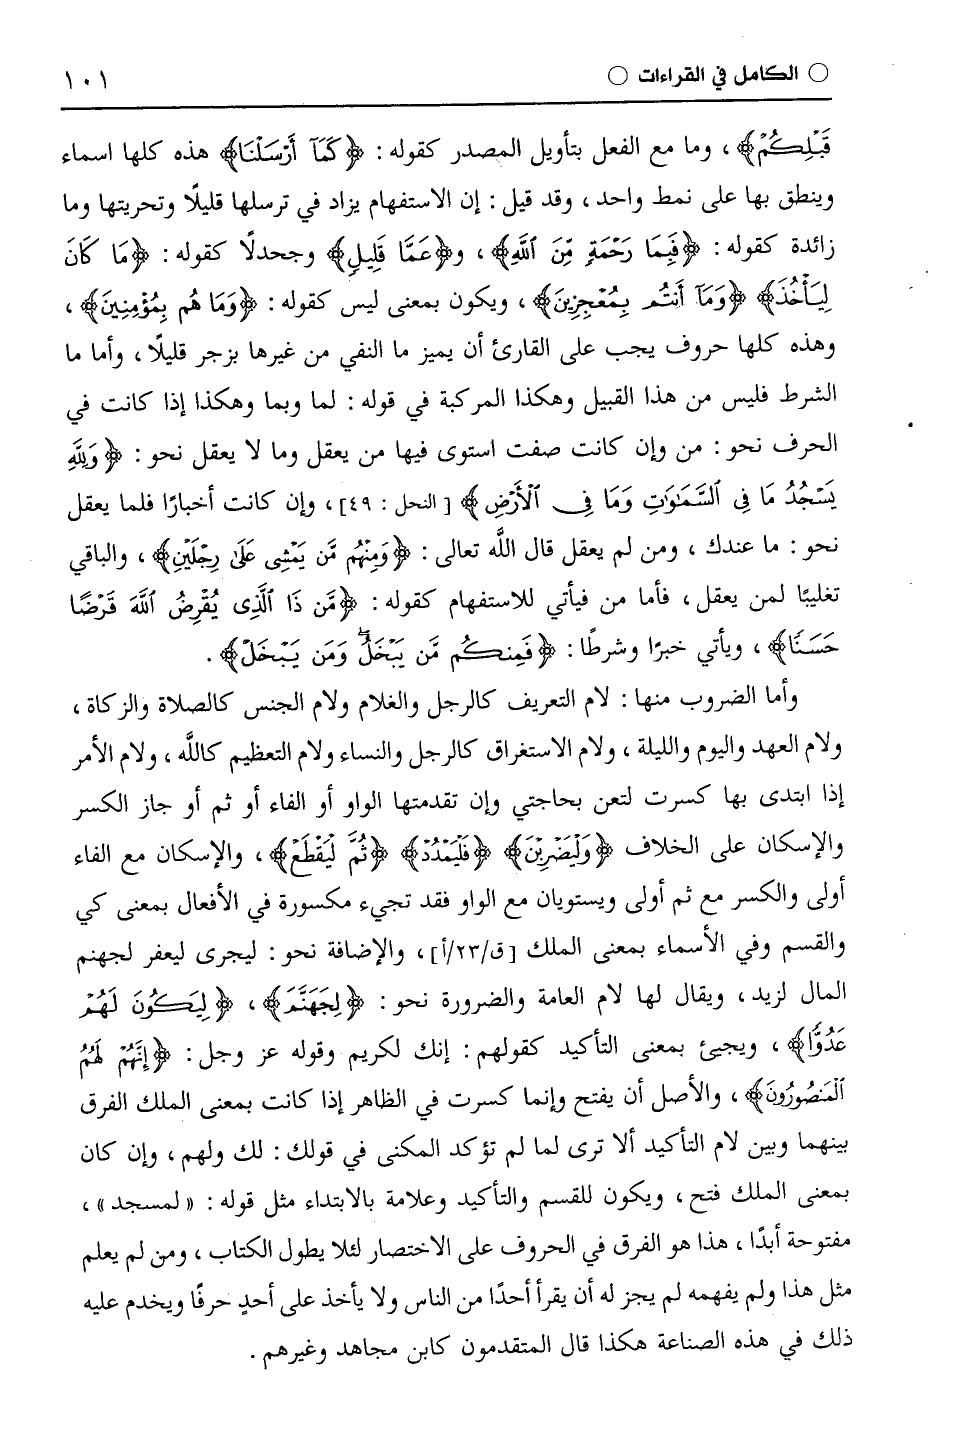 ○ الكامل في القراءات ○ ١٠١
قَبۡلِكُمۡ﴾ ، وما مع الفعل بتأويل المصدر كقوله : ﴿كَمَآ أَرۡسَلۡنَا﴾ هذه كلها اسماء
وينطق بها على نمط واحد ، وقد قيل : إن الاستفهام يزاد في ترسلها قليلًا وتحريتها وما
زائدة كقوله : ﴿فَبِمَا رَحۡمَةٖ مِّنَ ٱللَّهِ﴾ ، و﴿عَمَّا قَلِيلٖ﴾ وجحدلًا كقوله : ﴿مَا كَانَ
لِيَأۡخُذَ﴾ ﴿وَمَآ أَنتُم بِمُعۡجِزِينَ﴾ ، ويكون بمعنى ليس كقوله : ﴿وَمَا هُم بِمُؤۡمِنِينَ﴾ ،
وهذه كلها حروف يجب على القارئ أن يميز ما النفي من غيرها بزجر قليلًا ، وأما ما
الشرط فليس من هذا القبيل وهكذا المركبة في قوله : لما وبما وهكذا إذا كانت في
الحرف نحو : من وإن كانت صفت استوى فيها من يعقل وما لا يعقل نحو : ﴿وَلِلَّهِ
يَسۡجُدُ مَا فِي ٱلسَّمَٰوَٰتِ وَمَا فِي ٱلۡأَرۡضِ﴾ [ النحل : ٤٩] ، وإن كانت أخبارًا فلما يعقل
نحو : ما عندك ، ومن لم يعقل قال اللَّه تعالى : ﴿وَمِنۡهُم مَّن يَمۡشِي عَلَىٰ رِجۡلَيۡنِ﴾ ، والباقي
تغليبًا لمن يعقل ، فأما من فيأتي للاستفهام كقوله : ﴿مَّن ذَا ٱلَّذِي يُقۡرِضُ ٱللَّهَ قَرۡضًا
حَسَنٗا﴾ ، ويأتي خبرًا وشرطًا : ﴿فَمِنكُم مَّن يَبۡخَلُۖ وَمَن يَبۡخَلۡ﴾ .
وأما الضروب منها : لام التعريف كالرجل والغلام ولام الجنس كالصلاة والزكاة ،
ولام العهد واليوم والليلة ، ولام الاستغراق كالرجل والنساء ولام التعظيم كاللَّه ، ولام الأمر
إذا ابتدى بها كسرت لتعن بحاجتي وإن تقدمتها الواو أو الفاء أو ثم أو جاز الكسر
والإسكان على الخلاف ﴿وَلۡيَضۡرِبۡنَ﴾ ﴿فَلۡيَمۡدُدۡ﴾ ﴿ثُمَّ لۡيَقۡطَعۡ﴾ ، والإسكان مع الفاء
أولى والكسر مع ثم أولى ويستويان مع الواو فقد تجيء مكسورة في الأفعال بمعنى كي
والقسم وفي الأسماء بمعنى الملك [ق/٢٣/أ] ، والإضافة نحو : ليجرى ليعفر لجهنم
المال لزيد ، ويقال لها لام العامة والضرورة نحو : ﴿لِجَهَنَّمَ﴾ ، ﴿لِيَكُونَ لَهُمۡ
عَدُوّٗا﴾ ، ويجيئ بمعنى التأكيد كقولهم : إنك لكريم وقوله عز وجل : ﴿إِنَّهُمۡ لَهُمُ
ٱلۡمَنصُورُونَ﴾ ، والأصل أن يفتح وإنما كسرت في الظاهر إذا كانت بمعنى الملك الفرق
بينهما وبين لام التأكيد ألا ترى لما لم تؤكد المكنى في قولك : لك ولهم ، وإن كان
بمعنى الملك فتح ، ويكون للقسم والتأكيد وعلامة بالابتداء مثل قوله : «لمسجد» ،
مفتوحة أبدًا ، هذا هو الفرق في الحروف على الاختصار لئلا يطول الكتاب ، ومن لم يعلم
مثل هذا ولم يفهمه لم يجز له أن يقرأ أحدًا من الناس ولا يأخذ على أحدٍ حرفًا ويخدم عليه
ذلك في هذه الصناعة هكذا قال المتقدمون كابن مجاهد وغيرهم .